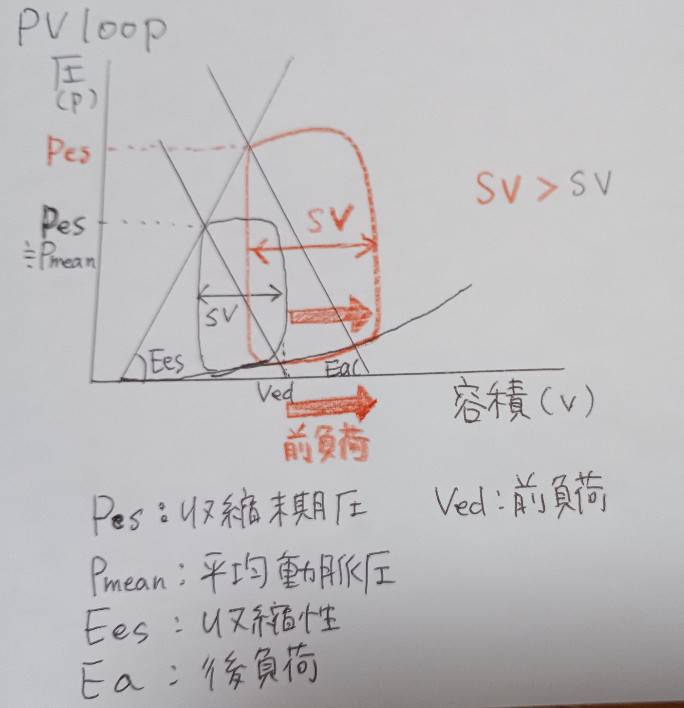 PV loop
圧
(P)
Pes
Pes
≒Pmean
SV > SV
SV
SV
Ees
Ea
Ved
容積(V)
前負荷
Pes:収縮末期圧
Ved:前負荷
Pmean:平均動脈圧
Ees:収縮性
Ea:後負荷